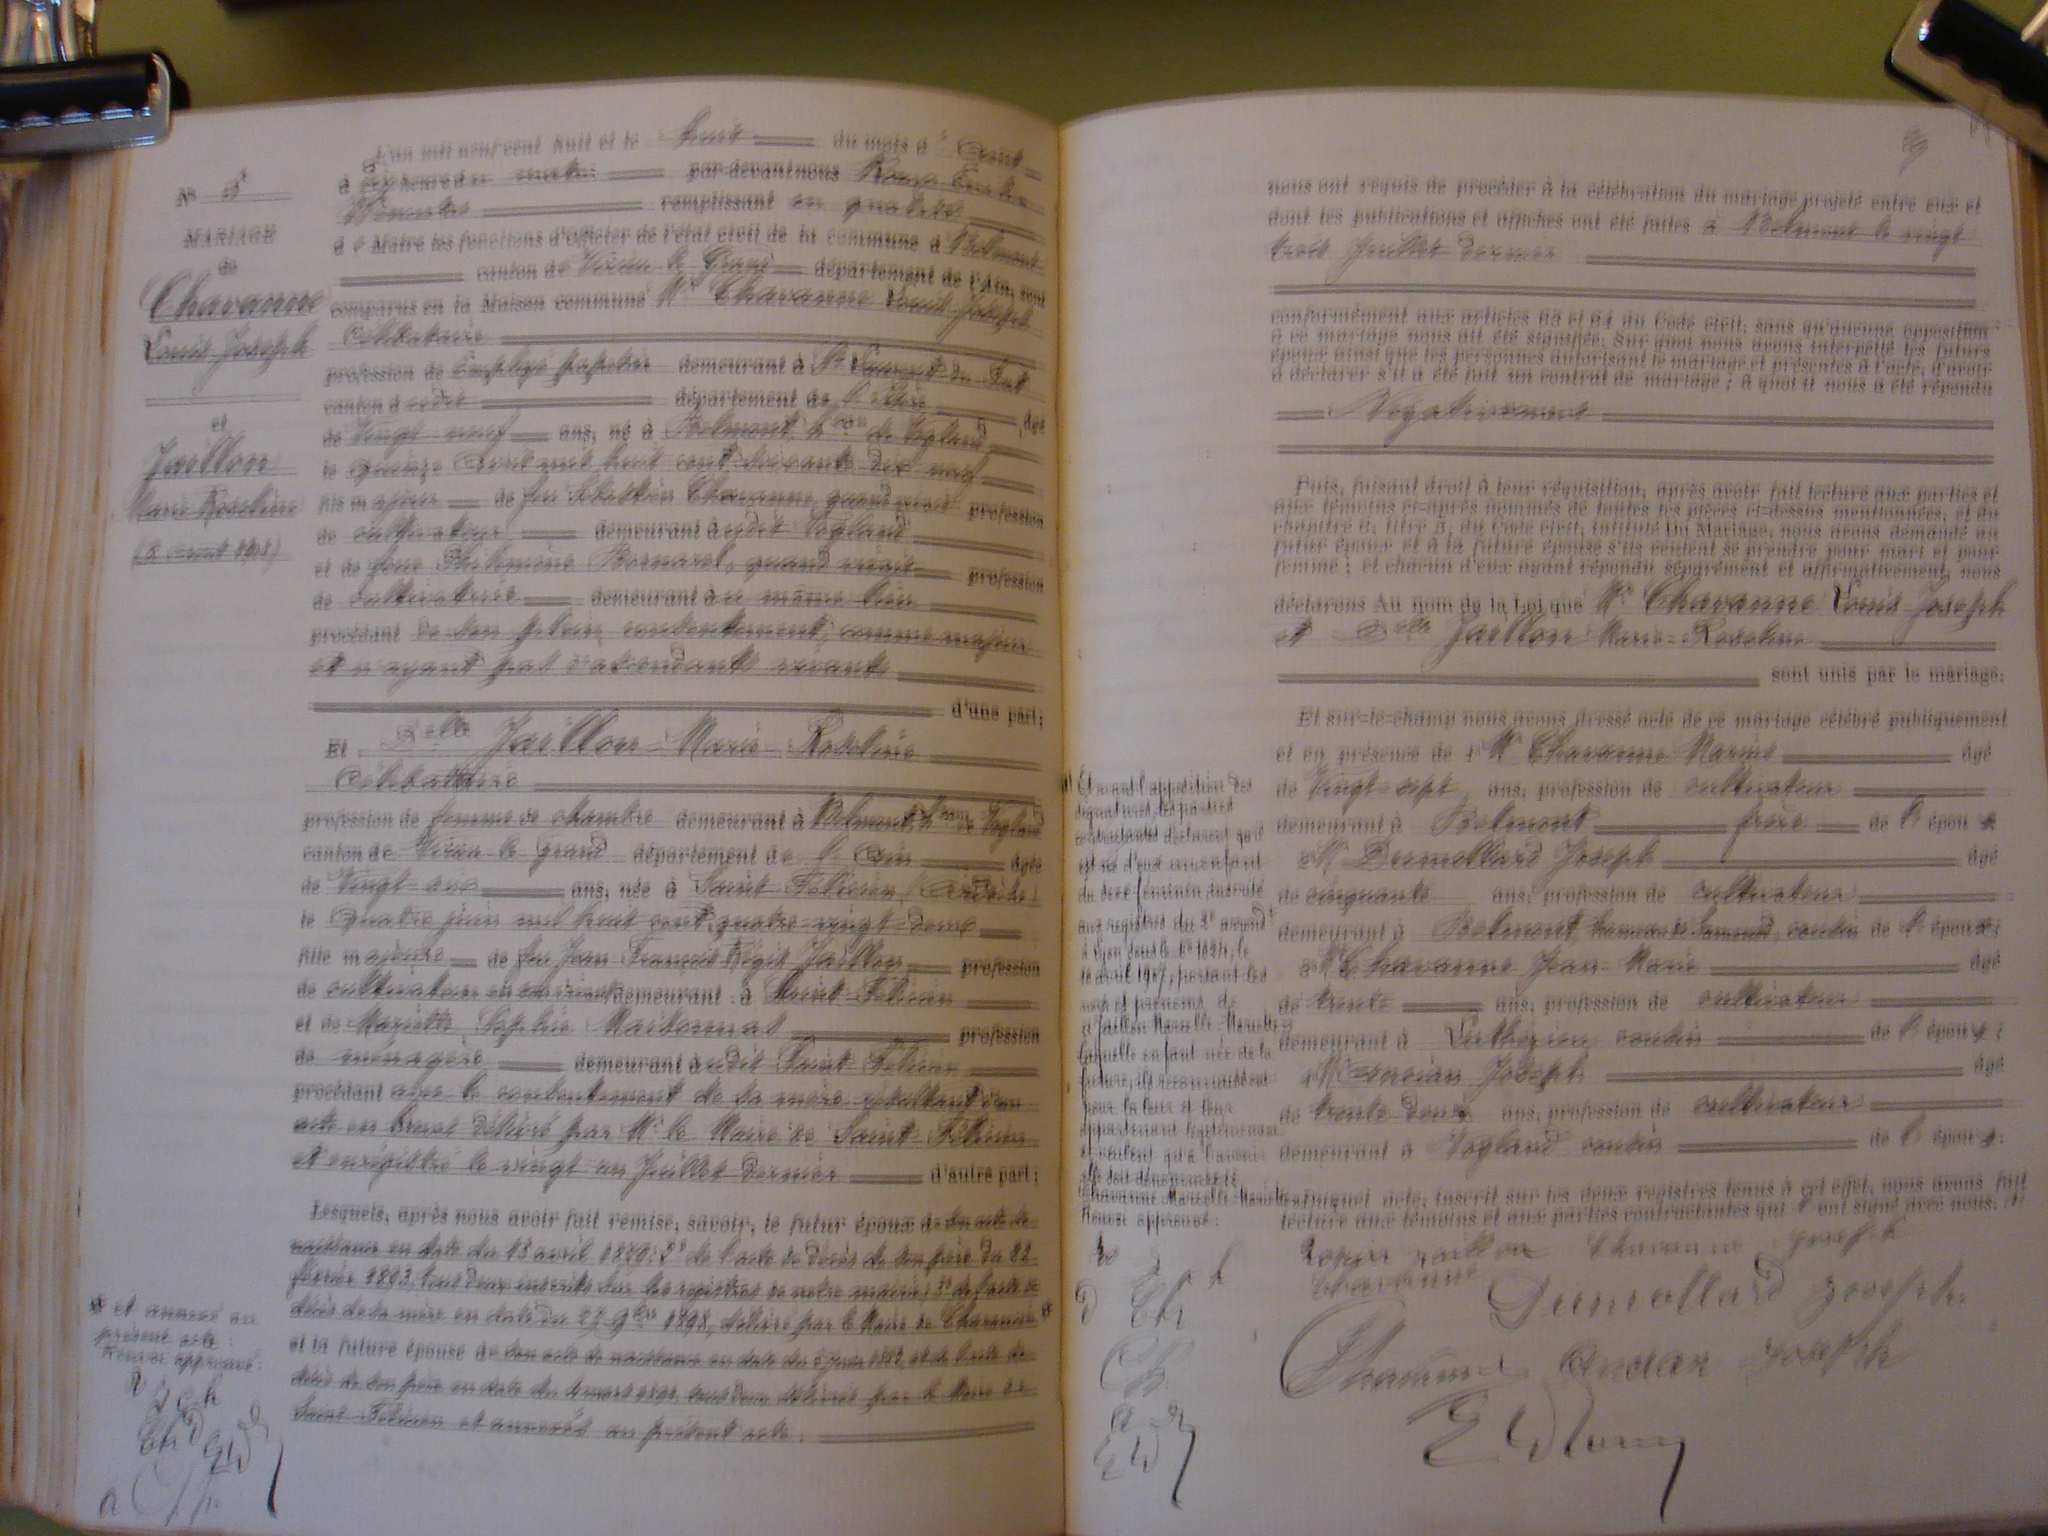 N° 5
MARIAGE
de
Chavanne
Louis Joseph
et
Jaillon
Marie Roseline
(8 août 1908)
L'an mil neuf cent huit et le huit du mois d'Août
à heures du matin par devant nous Roux
remplissant en qualité
de Maire les fonctions d'officier de l'état civil de la commune de Belmont
canton de Virieu-le-Grand département de l'Ain, sont
comparus en la Maison commune Mr Chavanne Louis Joseph
Célibataire
profession de Employé papetier demeurant à St Laurent du Pont
canton dudit département de l'Isère, âgé
de Vingt-neuf ans, né à Belmont, hau de Vogland
le quinze Avril mil huit cent soixante dix neuf
fils majeur de feu Sébastien Chavanne, quand vivait profession
de cultivateur demeurant audit Vogland
et de feue Philomène Bornarel, quand vivait profession
de cultivatrice demeurant au même lieu
procédant de son plein consentement, comme majeur
et n'ayant pas d'ascendants vivants
d'une part;
Et Delle Jaillon Marie-Roseline
Célibataire
profession de femme de chambre demeurant à Belmont, hau de Vogland
canton de Virieu-le-Grand département de l'Ain âgée
de Vingt-six ans, née à Saint-Félicien, (Ardèche)
le Quatre juin mil huit cent quatre-vingt-deux
fille majeure de feu Jean François Régis Jaillon profession
de cultivateur demeurant à Saint-Félicien
et de Mariette Sophie profession
de ménagère demeurant audit Saint-Félicien
procédant avec le consentement de sa mère résultant d'un
acte en brevet délivré par Mr le Maire de Saint-Félicien
et enregistré le vingt un Juillet dernier d'autre part;
Lesquels, après nous avoir fait remise, savoir, le futur époux de son acte de
naissance en date du 15 avril 1879; 2° de l'acte de décès de son père du 22
février 1893, tous deux inscrits sur les registres de notre mairie; 3° de l'acte de
décès de sa mère en date du 27 9bre 1898, délivré par le Maire de
et la future épouse de son acte de naissance en date du 5 juin 1882 et de l'acte de
décès de son père en date du tous deux délivrés par le Maire de
Saint-Félicien et annexés au présent acte.
et annexé au
présent acte:
Renvoi approuvé:
nous ont requis de procéder à la célébration du mariage projeté entre eux et
dont les publications et affiches ont été faites à Belmont le vingt
trois Juillet dernier
conformément aux articles 63 et 64 du Code civil, sans qu'aucune opposition
à ce mariage nous ait été signifiée. Sur quoi nous avons interpellé les futurs
époux ainsi que les personnes autorisant le mariage et présentes à l'acte, d'avoir
à déclarer s'il a été fait un contrat de mariage; à quoi il nous a été répondu
Négativement
Puis, faisant droit à leur réquisition, après avoir fait lecture aux parties et
aux témoins ci-après nommés de toutes les pièces ci-dessus mentionnées, et du
chapitre 6, titre 5, du Code civil, intitulé Du Mariage, nous avons demandé au
futur époux et à la future épouse s'ils veulent se prendre pour mari et pour
femme; et chacun d'eux ayant répondu séparément et affirmativement, nous
déclarons Au nom de la Loi que Mr Chavanne Louis Joseph
et Delle Jaillon Marie-Roseline
sont unis par le mariage.
Et sur-le-champ nous avons dressé acte de ce mariage célébré publiquement
et en présence de 1° Mr Chavanne Marius âgé
de Vingt-sept ans, profession de cultivateur
demeurant à Belmont frère de l'époux
2° Mr Dumollard Joseph âgé
de cinquante ans, profession de cultivateur
demeurant à Belmont, hameau de cousin de l'époux;
3° Mr Chavanne Jean-Marie âgé
de trente ans, profession de cultivateur
demeurant à Luthézieu cousin de l'époux;
4° Mr Ancian Joseph âgé
de trente deux ans, profession de cultivateur
demeurant à Vogland cousin de l'époux.
Et avant l'apposition des
signatures, les parties
contractantes déclarent qu'il
est né d'eux un enfant
du sexe féminin, inscrite
aux registres du 2e arrondt
à Lyon sous le n° 1024, le
10 avril 1907, portant les
nom et prénoms de
Jaillon Marcelle-Mariette
laquelle enfant née de la
future, ils reconnaissent
pour la leur et leur
appartenir légitimement
et veulent qu'à l'avenir
elle soit dénommée
Chavanne Marcelle-Mariette
Renvoi approuvé:
acte, inscrit sur les deux registres tenus à cet effet, nous avons fait
lecture aux témoins et aux parties contractantes qui ont signé avec nous.
Jaillon Chavanne Joseph
Chavanne Dumollard Joseph
Chavanne Ancian Joseph